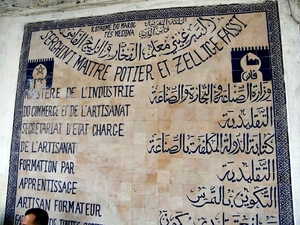 ROYAUME DU MAROC
FES MEDINA
السرغيني معلم الفخار والزليج الفاسي
SERGHINI MAITRE POTIER ET ZELLIGE FASSI
فاس
وزارة الصناعة والتجارة والصناعة
MINISTERE DE L'INDUSTRIE
التقليدية
DU COMMERCE ET DE L'ARTISANAT
كتابة الدولة المكلفة بالصناعة
SECRETARIAT D'ETAT CHARGE
التقليدية
DE L'ARTISANAT
التكوين بالتمرس
FORMATION PAR
APPRENTISSAGE
ARTISAN FORMATEUR